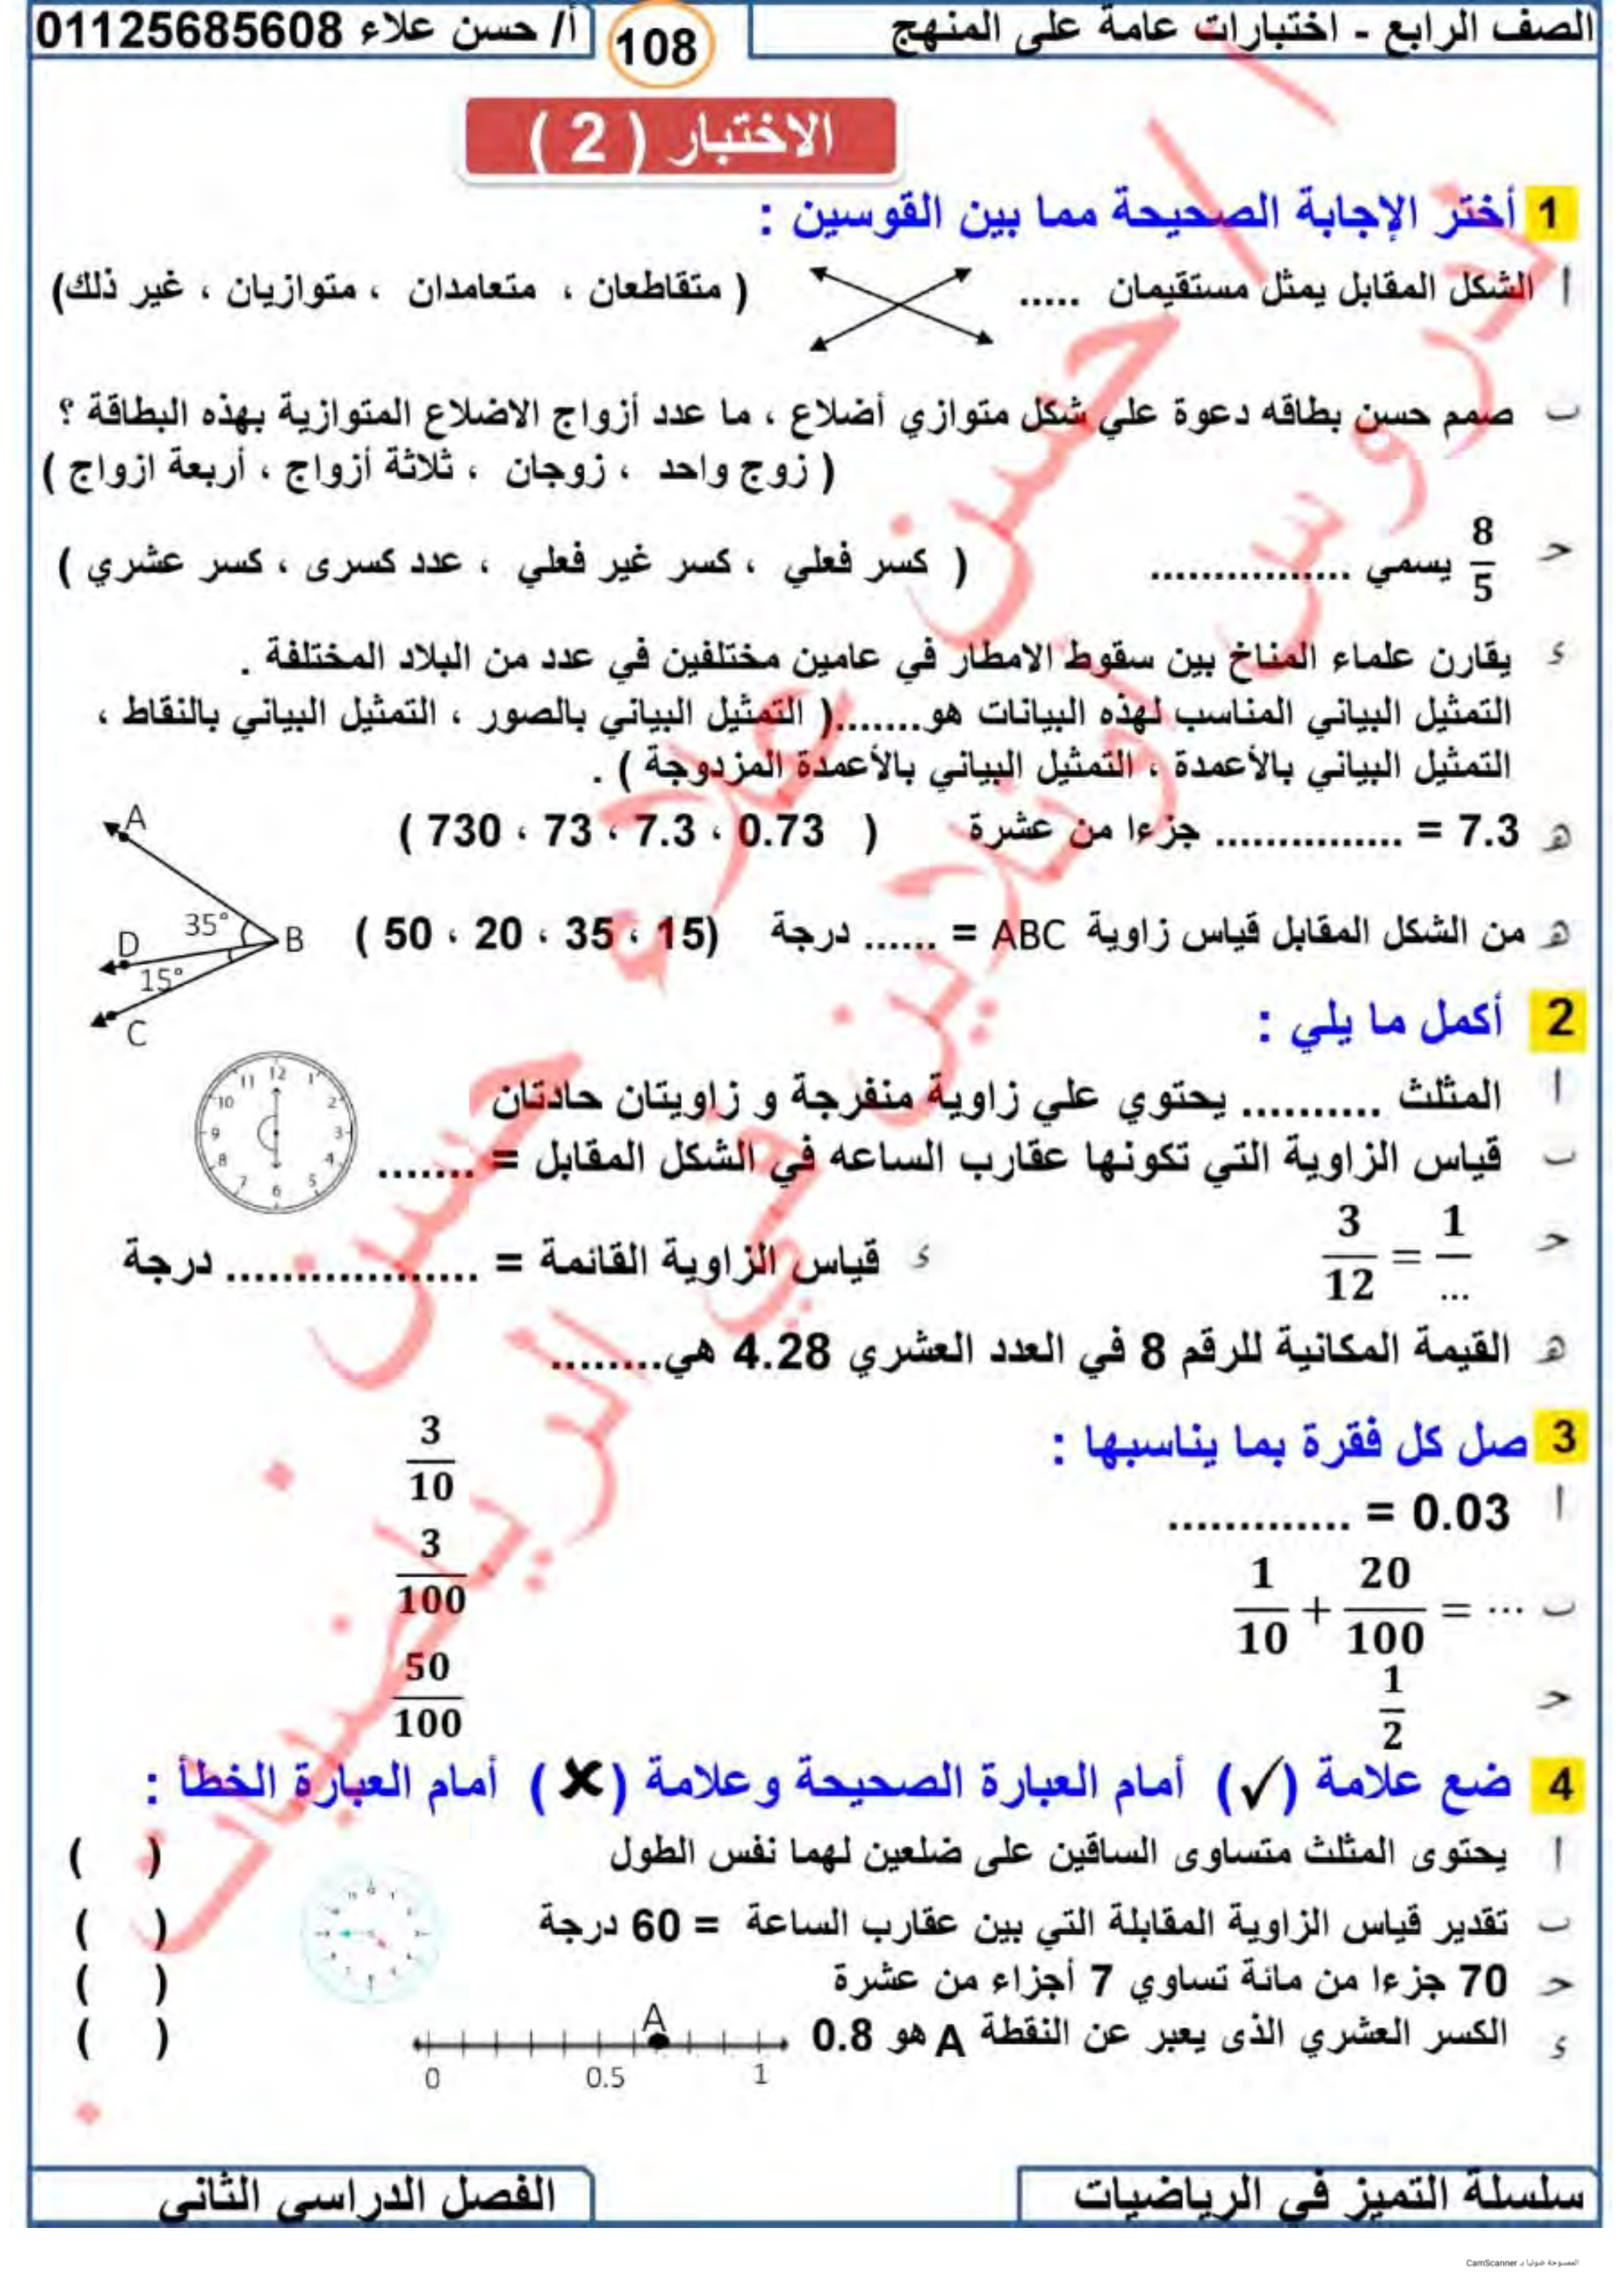 الصف الرابع - اختبارات عامة على المنهج
108
أ/ حسن علاء 01125685608
الاختبار ( 2 )
1 أختر الإجابة الصحيحة مما بين القوسين :
أ الشكل المقابل يمثل مستقيمان ..... ( متقاطعان ، متعامدان ، متوازيان ، غير ذلك)
ب صمم حسن بطاقه دعوة علي شكل متوازي أضلاع ، ما عدد أزواج الاضلاع المتوازية بهذه البطاقة ؟
( زوج واحد ، زوجان ، ثلاثة أزواج ، أربعة ازواج )
حـ 8/5 يسمي ................ ( كسر فعلي ، كسر غير فعلي ، عدد كسرى ، كسر عشري )
ء يقارن علماء المناخ بين سقوط الامطار في عامين مختلفين في عدد من البلاد المختلفة .
التمثيل البياني المناسب لهذه البيانات هو.......( التمثيل البياني بالصور ، التمثيل البياني بالنقاط ،
التمثيل البياني بالأعمدة ، التمثيل البياني بالأعمدة المزدوجة ) .
هـ 7.3 = ............... جزءا من عشرة ( 0.73 ، 7.3 ، 73 ، 730 )
هـ من الشكل المقابل قياس زاوية ABC = ...... درجة (15 ، 35 ، 20 ، 50 )
A
35°
B
D
15°
C
2 أكمل ما يلي :
أ المثلث .......... يحتوي علي زاوية منفرجة و زاويتان حادتان
ب قياس الزاوية التي تكونها عقارب الساعه في الشكل المقابل = .......
12 1 2 3 4 5 6 7 8 9 10 11
حـ 3/12 = 1/...
ء قياس الزاوية القائمة = .................. درجة
هـ القيمة المكانية للرقم 8 في العدد العشري 4.28 هي........
3 صل كل فقرة بما يناسبها :
3/10
أ 0.03 = .............
3/100
ب 1/10 + 20/100 = ...
50/100
حـ 1/2
4 ضع علامة (✓) أمام العبارة الصحيحة وعلامة (✘) أمام العبارة الخطأ :
أ يحتوى المثلث متساوى الساقين على ضلعين لهما نفس الطول ( )
ب تقدير قياس الزاوية المقابلة التي بين عقارب الساعة = 60 درجة ( )
حـ 70 جزءا من مائة تساوي 7 أجزاء من عشرة ( )
ء الكسر العشري الذى يعبر عن النقطة A هو 0.8 ( )
A
0 0.5 1
سلسلة التميز في الرياضيات
الفصل الدراسي الثاني
الممسوحة ضوئيا بـ CamScanner